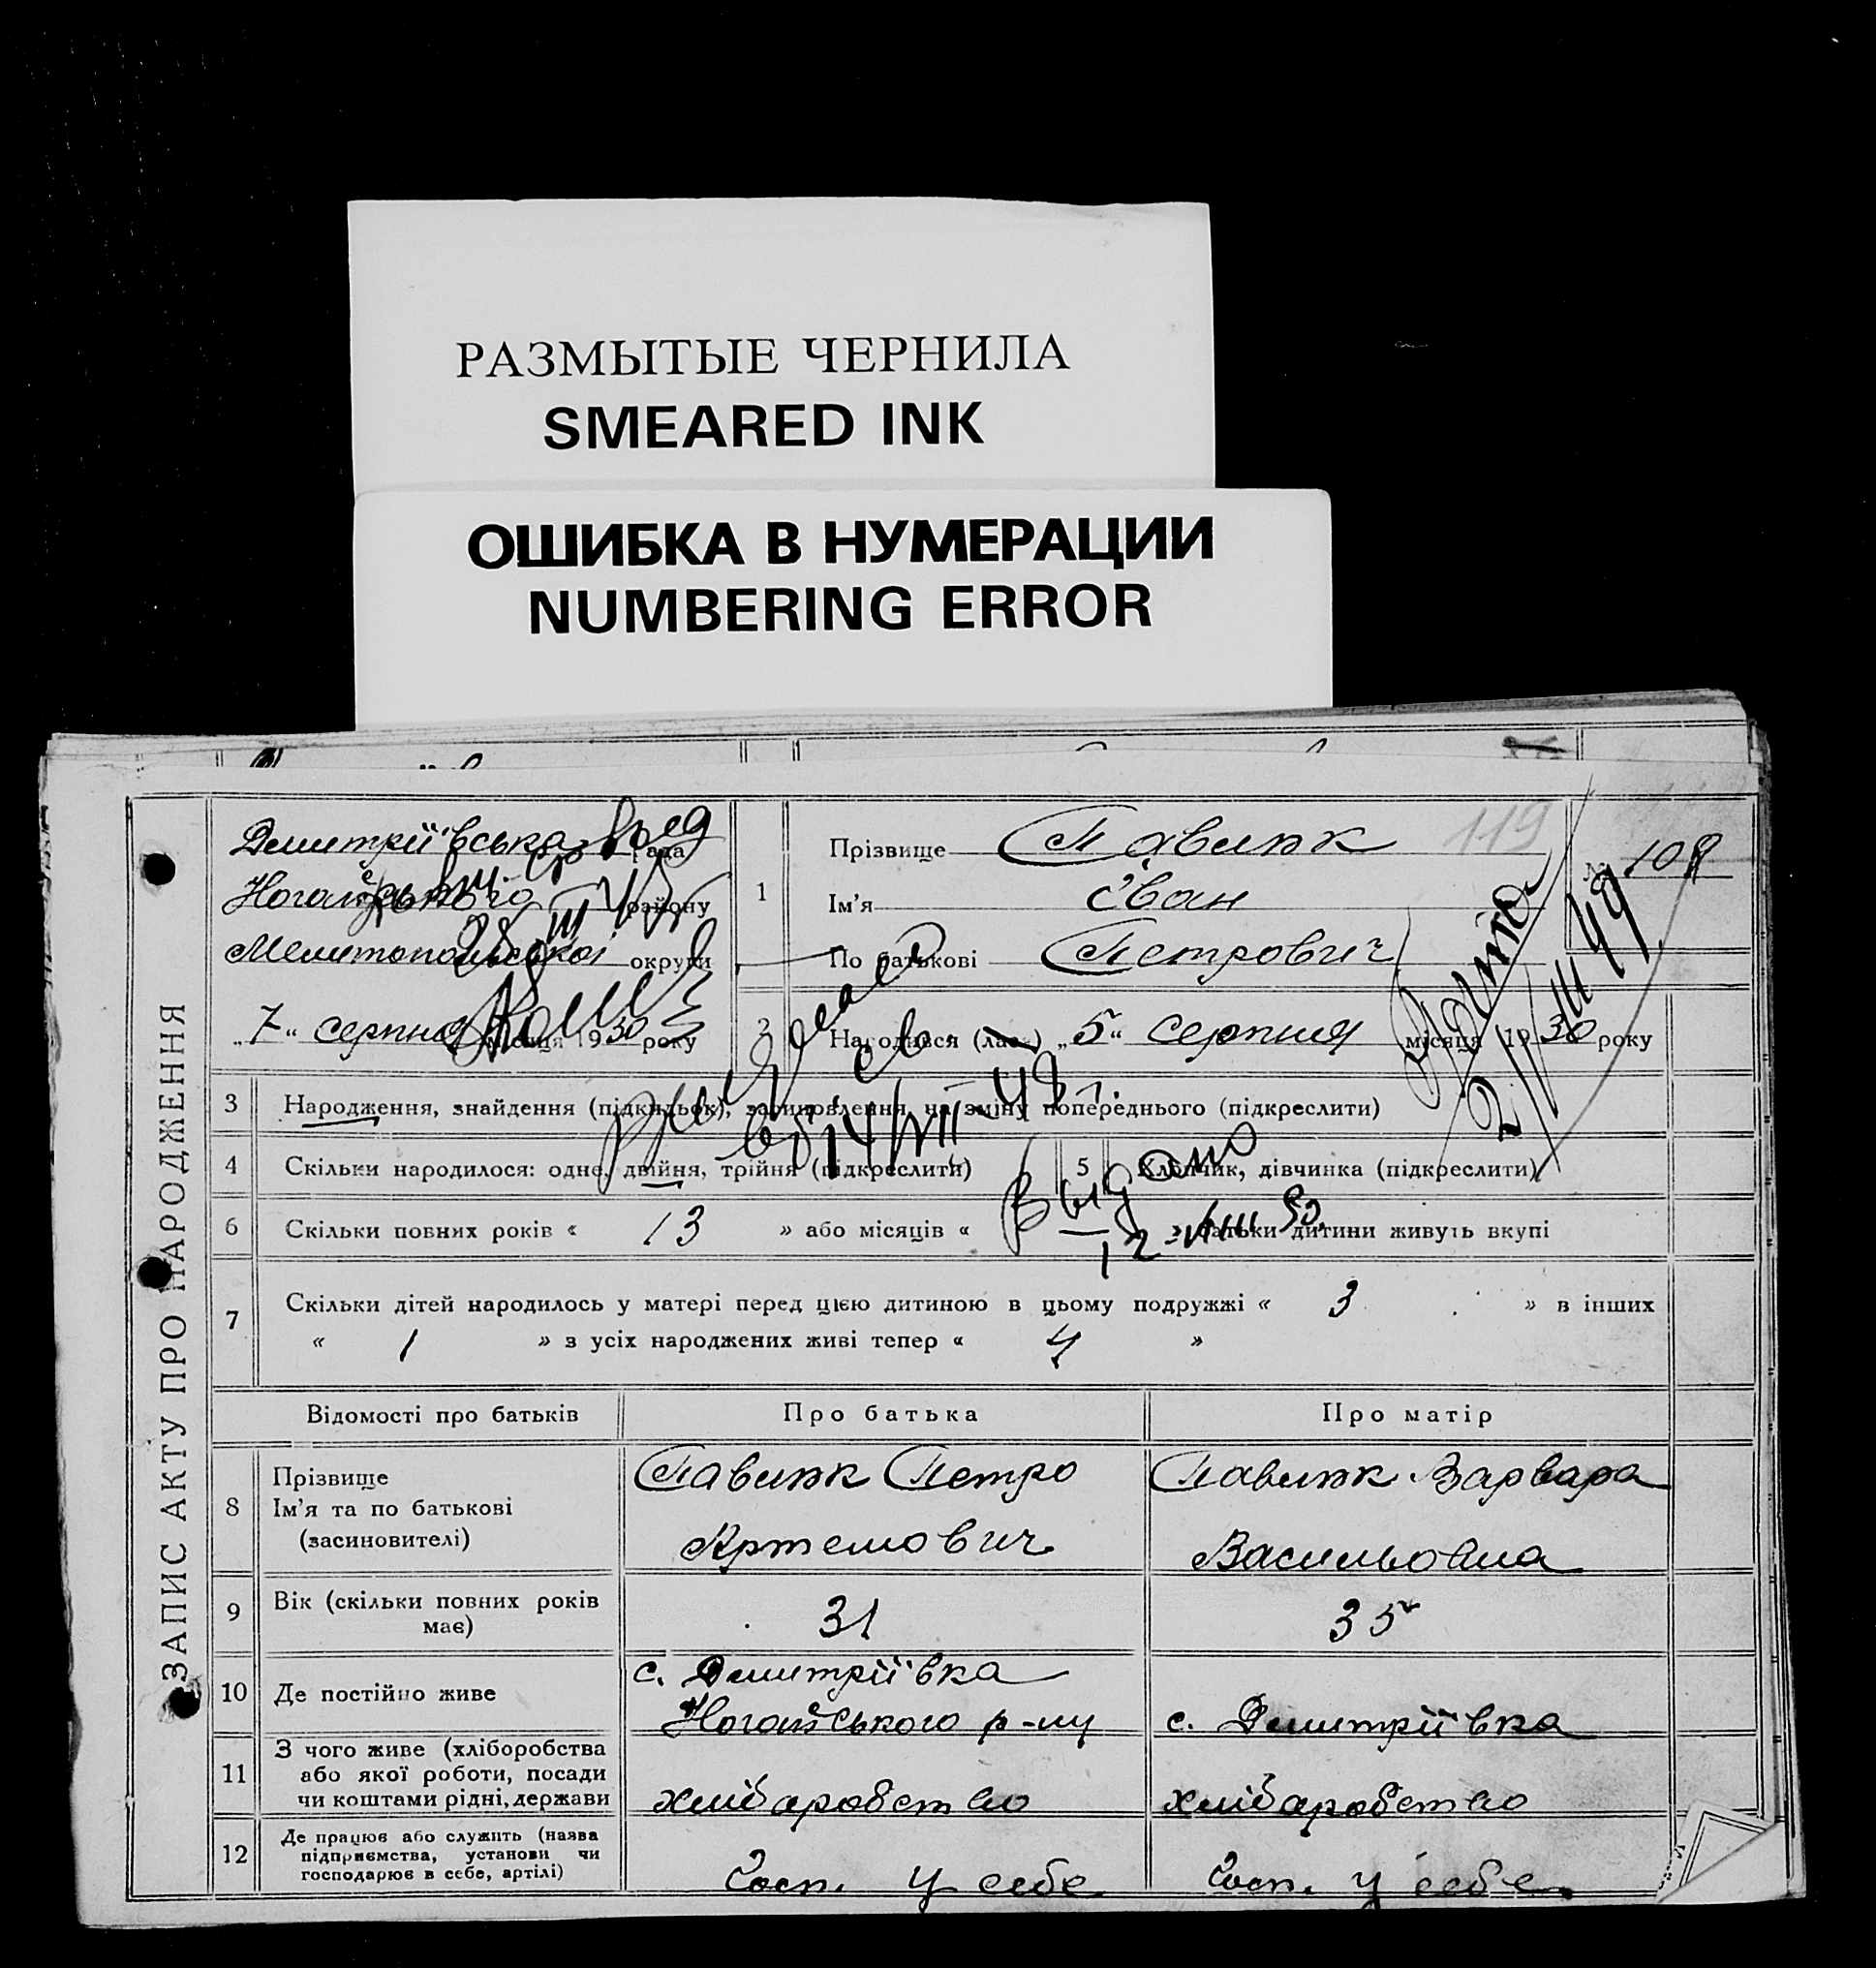 РАЗМЫТЫЕ ЧЕРНИЛА
SMEARED INK
ОШИБКА В НУМЕРАЦИИ
NUMBERING ERROR
ЗАПИС АКТУ ПРО НАРОДЖЕННЯ
Дмитріївська рада
Ногайського району
Мелитопольської округи
„7“ серпня місяця 1930 року
1
Прізвище Павлик
119
Ім’я Іван
По батькові Петрович
№ 108
2
Народився (лась) „5“ серпня місяця 1930 року
3 Народження, знайдення (підкидьок), засиновлення, на зміну попереднього (підкреслити)
4 Скільки народилося: одне, двійня, трійня (підкреслити)
5 Хлопчик, дівчинка (підкреслити)
Выдано
6 Скільки повних років « 13 » або місяців « » батьки дитини живуть вкупі
7 Скільки дітей народилось у матері перед цією дитиною в цьому подружжі « 3 » в інших
« 1 » з усіх народжених живі тепер « 4 »
Відомості про батьків Про батька Про матір
8 Прізвище
Ім’я та по батькові
(засиновителі)
Павлик Петро
Артемович
Павлик Варвара
Васильовна
9 Вік (скільки повних років
має)
31
35
10 Де постійно живе
с. Дмитріївка
Ногайського р-ну
с. Дмитріївка
11 З чого живе (хліборобства
або якої роботи, посади
чи коштами рідні, держави
хлібаробство
хлібаробство
12 Де працює або служить (назва
підприємства, установи чи
господарює в себе, артілі)
Госп. у себе
Госп. у себе